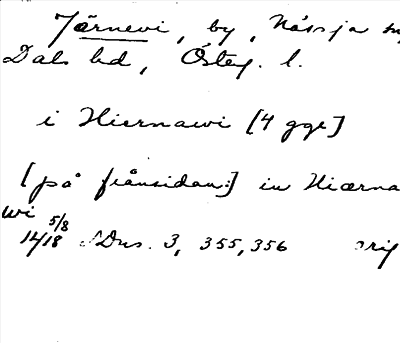 Järnevi, by, Nässja
Dals hd, Österg. l.
i Hiernawi [4 ggr]
[på frånsidan:] in Hiærna
wi
14 5/8 18 SDns. 3, 355, 356 orig